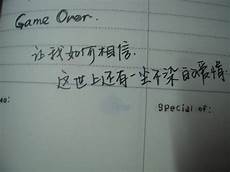 Game Over.
让我如何相信
这世上还有一尘不染的爱情
no:
special of: